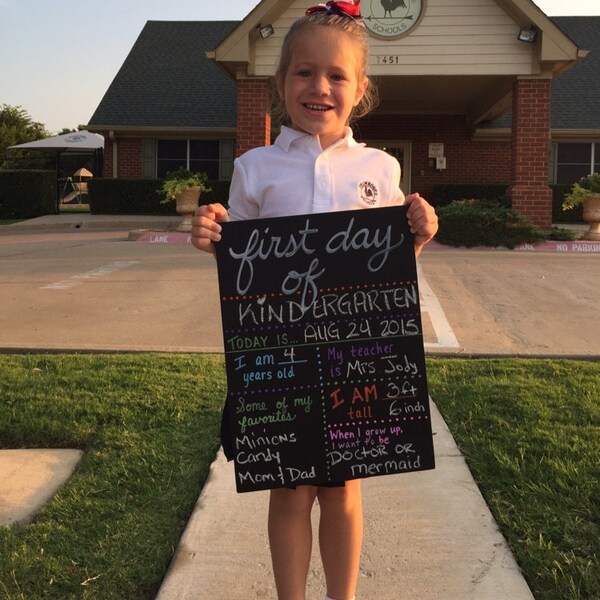 SCHOOLS
1451
LANE
NO PARKING
first day
of
KINDERGARTEN
TODAY IS... AUG 24 2015
I am 4
years old
My teacher
is Mrs Jody
Some of my
favorites
Minions
Candy
Mom & Dad
I AM 3ft
tall 6 inch
When I grow up,
I want to be
DOCTOR OR
mermaid